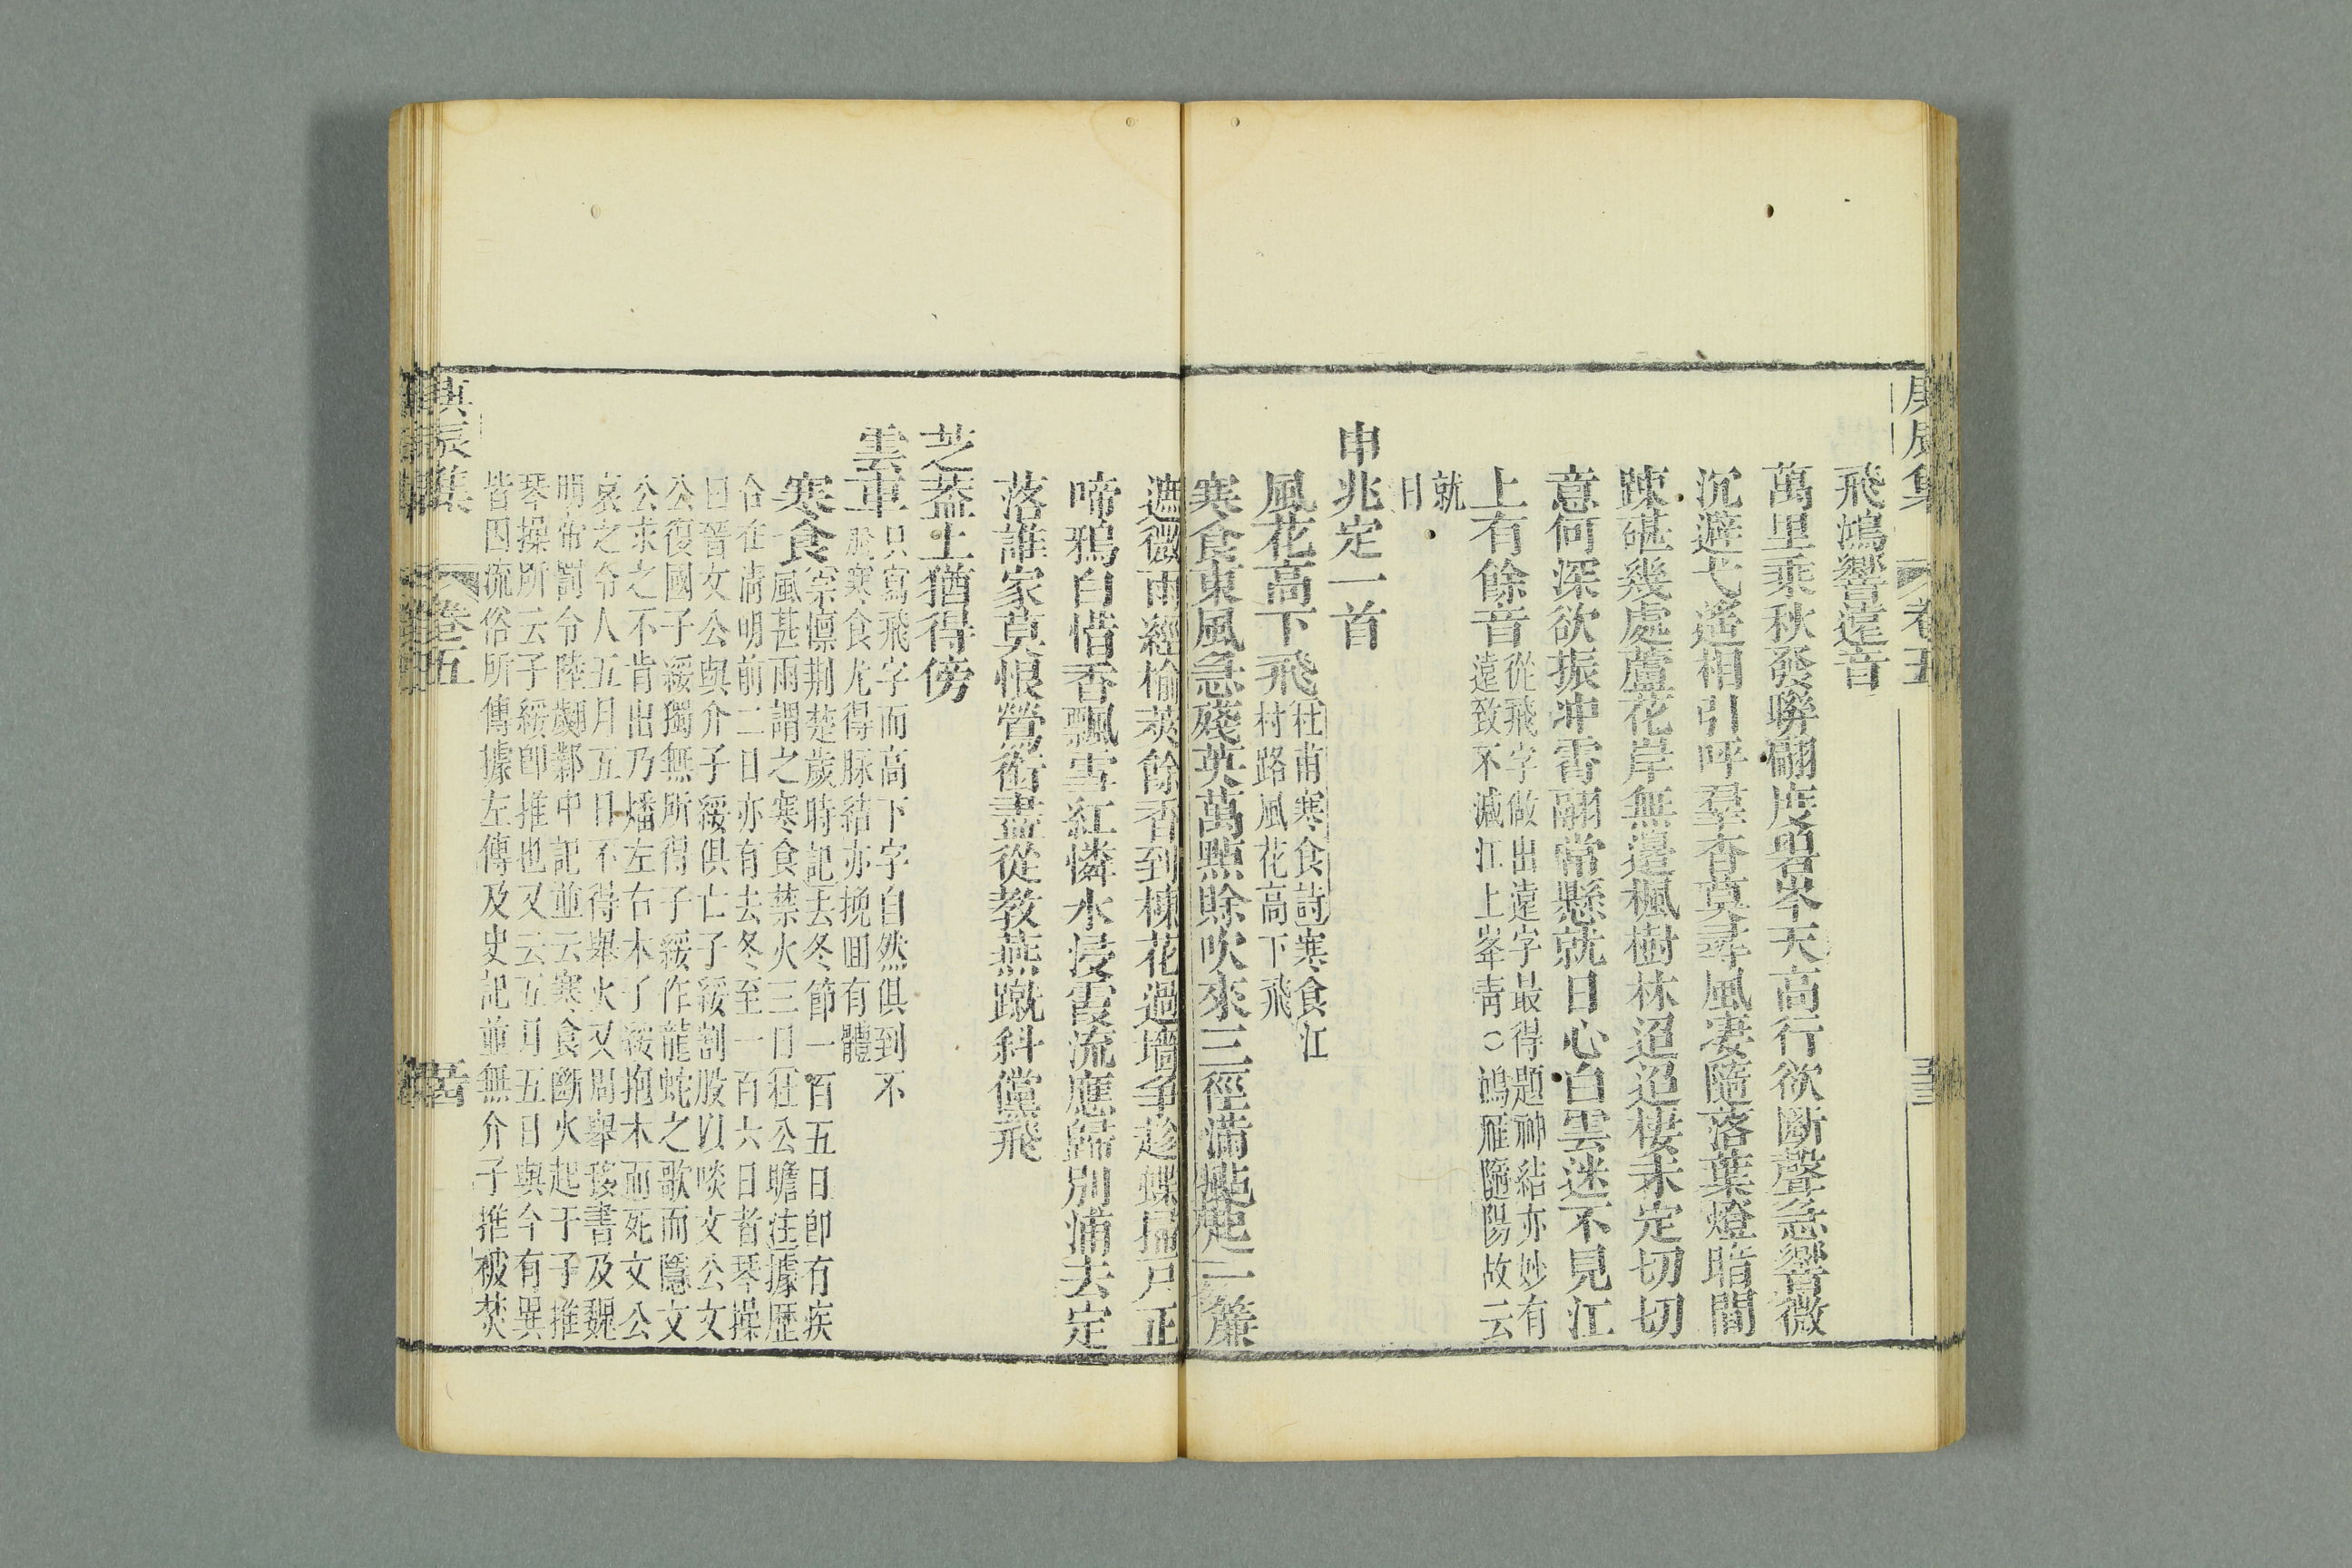 庚辰集 卷五 三三
飛鴻響遠音
萬里乘秋發聯翩度碧岑天高行欲斷聲急響微
沉避弋遙相引呼羣杳莫尋風淒隨落葉燈暗間
疎碪幾處蘆花岸無邊楓樹林迢迢棲未定切切
意何深欲振冲霄翮常懸就日心白雲迷不見江
上有餘音
從飛字做出遠字最得題神結亦妙有
遠致不減江上峯靑○鴻雁隨陽故云
就
日
申兆定一首
風花高下飛
杜甫寒食詩寒食江
村路風花高下飛
寒食東風急殘英萬點賒吹來三徑滿颭起一簾
遮微雨經榆莢餘香到楝花過墻爭趁蝶撲戶正
啼鴉自惜香飄雪紅憐水浸霞流應歸別浦去定
落誰家莫恨鶯銜盡從教燕蹴斜儻飛
芝葢上猶得傍
雲車
只寫飛字而高下字自然俱到不
脫寒食尤得脉結亦挽囬有體
寒食
宗懍荆楚歲時記去冬節一百五日卽有疾
風甚雨謂之寒食禁火三日杜公瞻注據歷
合在淸明前二日亦有去冬至一百六日者琴操
曰晉文公與介子綏俱亡子綏割股以啖文公文
公復國子綏獨無所得子綏作龍蛇之歌而隱文
公求之不肯出乃燔左右木子綏抱木而死文公
哀之令人五月五日不得舉火又周舉移書及魏
明帝罰令陸翽鄴中記並云寒食斷火起于子推
琴操所云子綏卽推也又云五月五日與今有異
皆因流俗所傳據左傳及史記並無介子推被焚
庚辰集 卷五